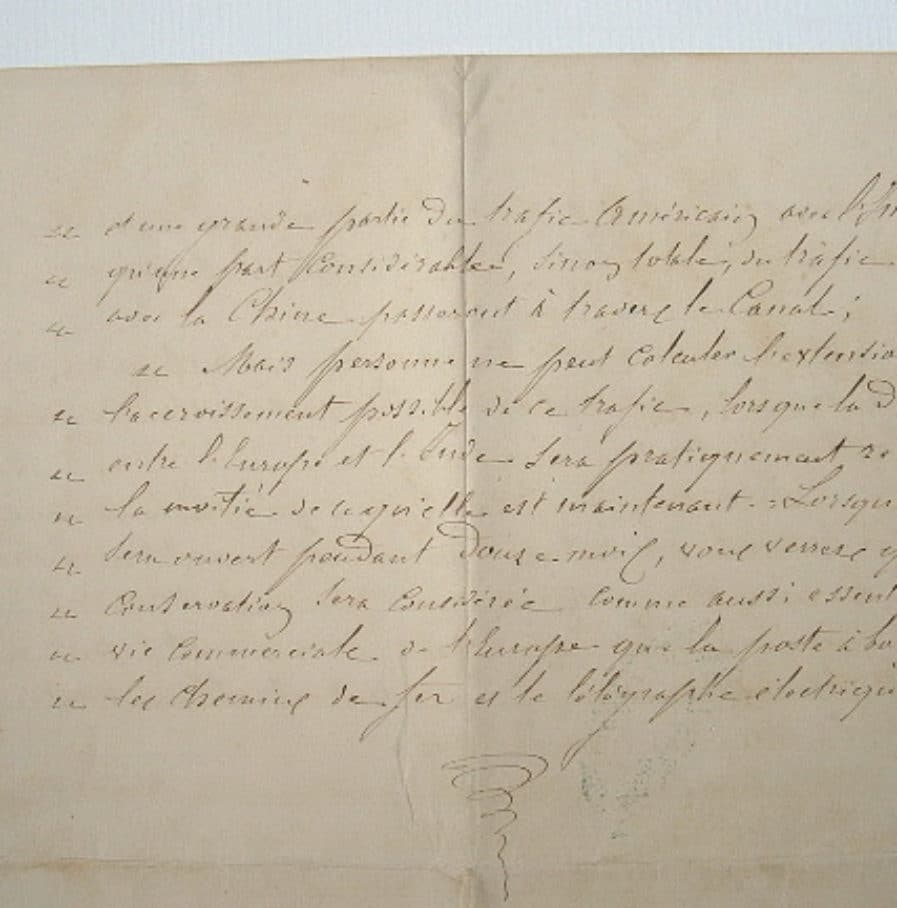 « d'une grande partie du trafic Américain, avec l'In
« qu'une part considérable, sinon totale, du trafic
« avec la Chine passeront à travers le Canal;
« Mais personne ne peut calculer l'extensio
« l'accroissement possible de ce trafic, lorsque la d
« entre l'Europe et l'Inde sera pratiquement re
« la moitié de ce qu'elle est maintenant. - Lorsqu
« sera ouvert pendant douze mois, vous verrez q
« conservation sera considérée comme aussi essent
« vie commerciale de l'Europe que la poste à
« les chemins de fer et le télégraphe électrique